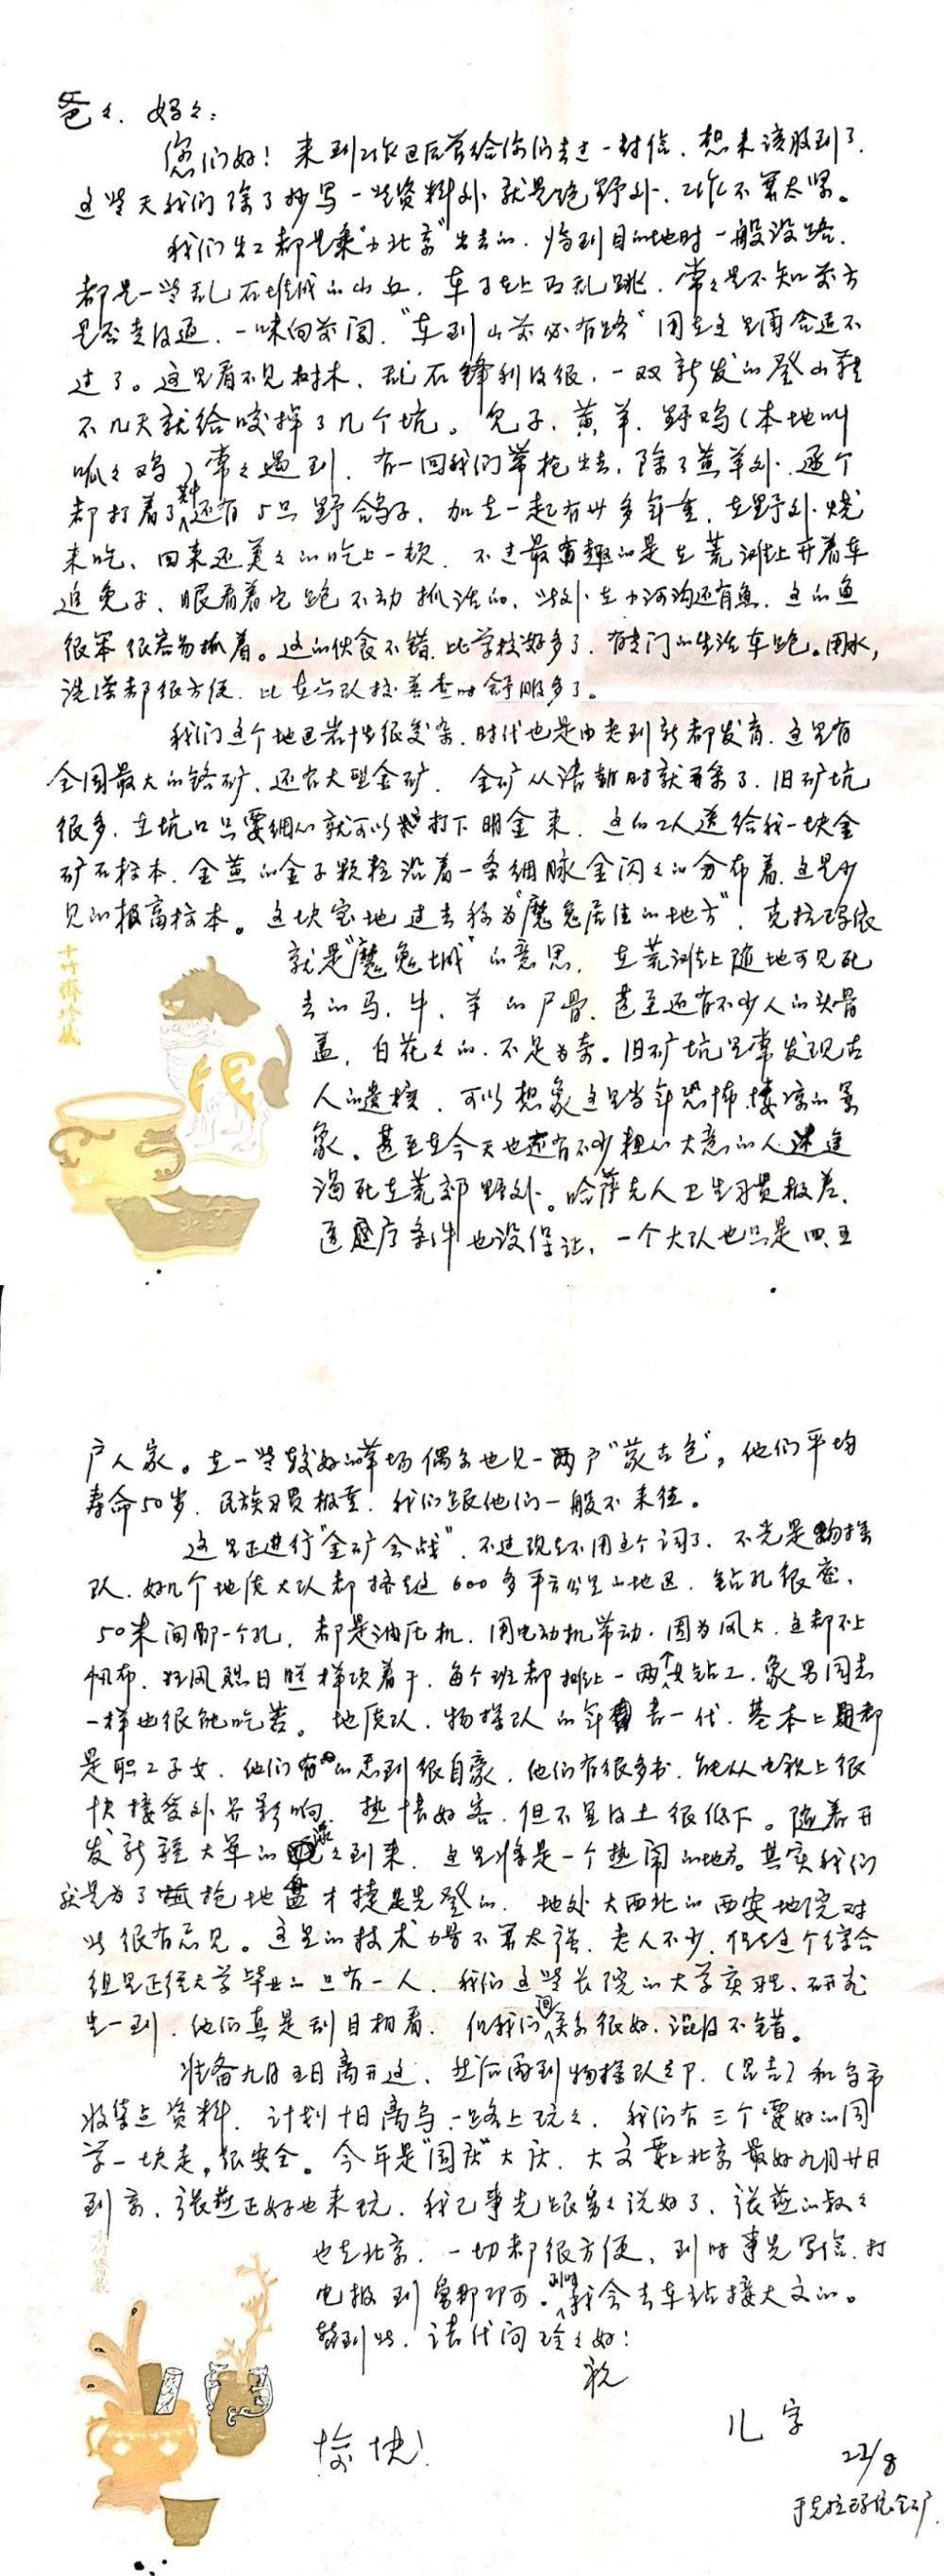 爸々、妈々:
您们好！来到工作区后曾给你们去过一封信，想来该收到了。
这些天我们除了抄写一些资料外就是跑野外，工作不算太紧。
我们出工都是乘“小北京”出去的，临到目的地时一般没路，
都是一些乱石堆成的山丘，车子在上面乱跳，常々是不知前方
是否走得通，一味向前闯，“车到山前必有路”用在这里再合适不
过了。这里看不见树木，乱石锋利得很，一双新发的登山鞋
不几天就给咬掉了几个坑。兔子、黄羊、野鸡（本地叫
呱々鸡）常々遇到，有一回我们带枪出去，除了黄羊外，逐个
都打着了，还有5只野鸽子，加在一起有廿多斤重，在野外烧
来吃，回来还美々的吃上一顿，不过最有趣的是在荒滩上开着车
追兔子，眼看着它跑不动抓活的，此外在小河沟还有鱼，这的鱼
很笨很容易抓着。这的伙食不错，比学校好多了，有专门的生活车跑。用水，
洗澡都很方便，比在分队被普查时舒服多了。
我们这个地区岩性很复杂，时代也是由老到新都发育，这里有
全国最大的铬矿，还有大型金矿，金矿从清朝时就开采了，旧矿坑
很多，在坑口只要细心就可以打下明金来，这的工人送给我一块金
矿石标本，金黄的金子颗粒沿着一条细脉金闪々的分布着，这是少
见的极高标本。这块宝地过去称为“魔鬼居住的地方”，克拉玛依
就是“魔鬼城”的意思，在荒滩上随地可见死
去的马、牛、羊的尸骨，甚至还有不少人的头骨
盖，白花々的，不足为奇。旧矿坑里常发现古
人的遗核，可以想象这里当年恐怖、凄凉的景
象。甚至在今天也还有不少粗心大意的人迷途
渴死在荒郊野外。哈萨克人卫生习惯极差，
医疗条件也没保证，一个大队也只是四、五
户人家。在一些较好的草场偶尔也见一两户“蒙古包”，他们平均
寿命50岁，民族习惯极重，我们跟他们一般不来往。
这里正进行“金矿会战”，不过现在不用这个词了，不光是物探
队，好几个地质大队都挤在这600多平方公里的地区，钻孔很密，
50米间隔一个孔，都是油压机，用电动机带动，因为风大，这都不上
帆布，狂风烈日照样顶着干，每个班都排上一两个女钻工，象男同志
一样也很能吃苦。地质队、物探队的年青一代，基本上都
是职工子女，他们感到很自豪，他们有很多书，能从电视上很
快接受外界影响，热情好客，但不显得土很低下。随着开
发新疆大军的滚々到来，这里将是一个热闹的地方。其实我们
就是为了抢地盘才捷足先登的，地处大西北的西安地院对
此很有意见。这里的技术力量不算太强，老人不少，但在这个综合
组里正经大学毕业的只有一人，我们这些长院的大学实习生、研究
生一到，他们真是刮目相看，但我们间关系很好，混得不错。
准备九月五日离开这，然后再到物探队队部（昌吉）和乌市
收集点资料，计划十日离乌一路上玩々，我们有三个要好的同
学一块走，很安全。今年是“国庆”大庆，大文要上北京最好九月廿日
到京，张燕正好也来玩，我已事先跟舅々说好了，张燕的叔々
也在北京，一切都很方便，到时事先写信、打
电报到舅那即可。到时我会去车站接大文的。
暂到此，请代问玲々好！
祝
愉快！
儿 字
22/8
于克拉玛依金矿
十竹斋珍藏